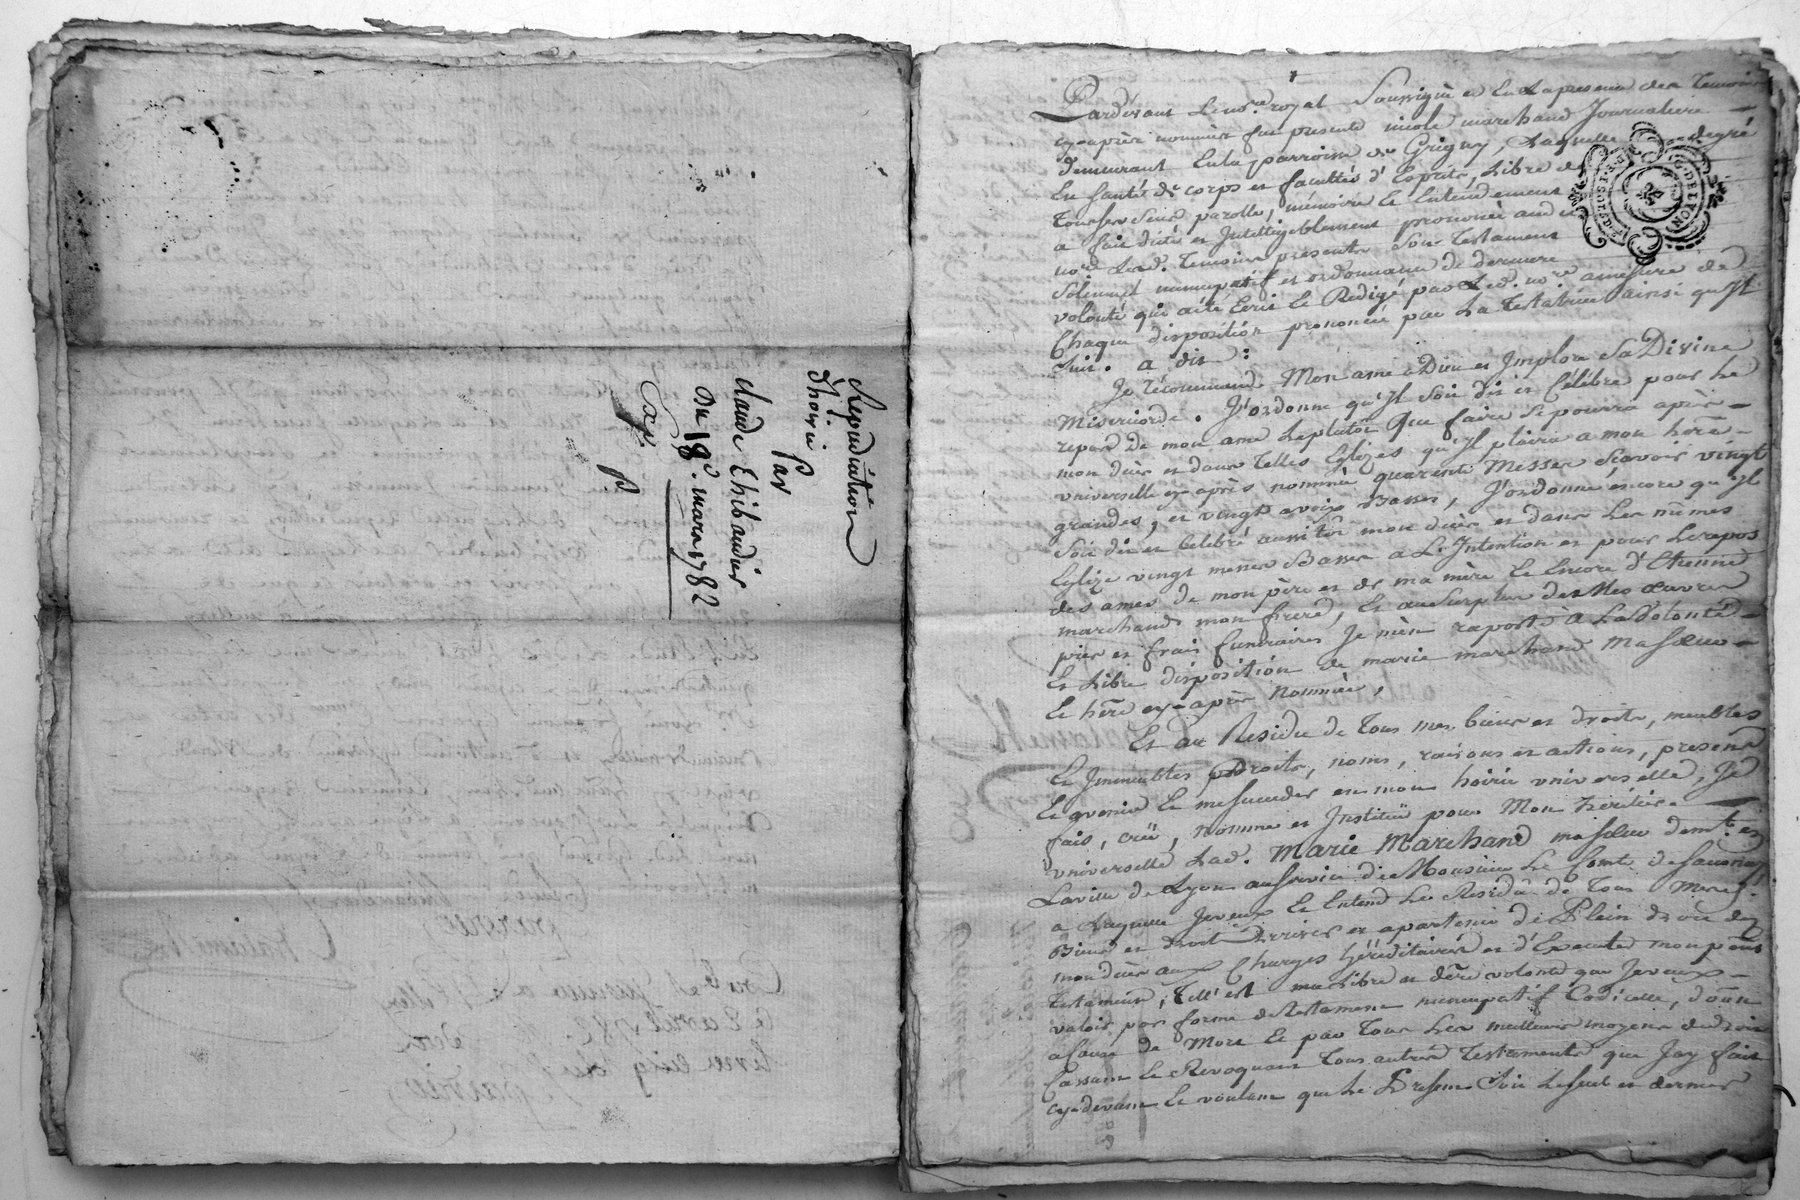 Repudiation
d'hoirie
Par
claude Thibaudier
Du 18e. mars 1782
Exp.
Pardevant Le no.re royal Soussigné et En La presence des Temoins
cy=après nommés fut presente nicole marchand Journaliere
demeurant En la parroisse de Grigny, Laquelle degré
En santé de corps et facultés d'Esprit, Libre de
Tous ses Sens, parolle, mémoire Et Entendement
a fait dicté et Intelligiblement prononcé aud.
no.re Led. Temoins presents Son Testament
Solennel nuncupatif et ordonnance de derniere
volonté qui a été Ecrit Et Redigé par Led. no.re amésure de
Chaque disposition prononcée par La Testatrice ainsi qu'Il
Suit. a dit :
Je récommande Mon ame a Dieu et Implore Sa Divine
Misericorde. J'ordonne qu'Il soit dit et Célébré pour Le
repos de mon ame Leplutôt que faire se pourra après
mon décès et dans Telles Eglizes qu'Il plaira a mon hére
universelle cy après nommée quarente Messes Scavoir vingt
grandes, et vingt avoix Basses, J'ordonne encore qu'Il
soit dit et Celebré aussitôt mon décès et dans Les mêmes
Eglize vingt messes Basses a L'Intention et pour Le repos
des ames de mon père et de ma mère Et Encore d'Etienne
marchand mon frere, Et au Surplus des Mes œuvres
pies et frais funeraires Je m'en raporte à La Volonté
Et Libre disposition de marie marchand Ma Sœur
Et hére cy=après Nommée,
Et au Residu de Tous mes biens et droits, meubles
Et Immeubles Droits, noms, raisons et actions, presens
Et avenir Et me succeder en mon hoirie universelle, Je
fais, créé, nomme et Institue pour Mon héritiere
universelle Lad. Marie Marchand ma sœur demt. en
La ville de Lyon au service de Monsieur Le Comte de
a Laquelle Je veux Et Entend Le Residu de Tous Mes
Biens et droits arriver et apartenir de Plein droit des
mon décès aux Charges héréditaires et d'Executer mon pñt
Testament, Tell'est ma libre et dére volonté que Je veux
valoir par forme de Testament nuncupatif Codicille, donn
a Cause de Mort Et par Tous Les meilleurs moyens de droit
Cassant Et Revoquant Tous autres Testaments que J'ay fait
cy=devant Et voulant que Le Present soit Le seul et dernier